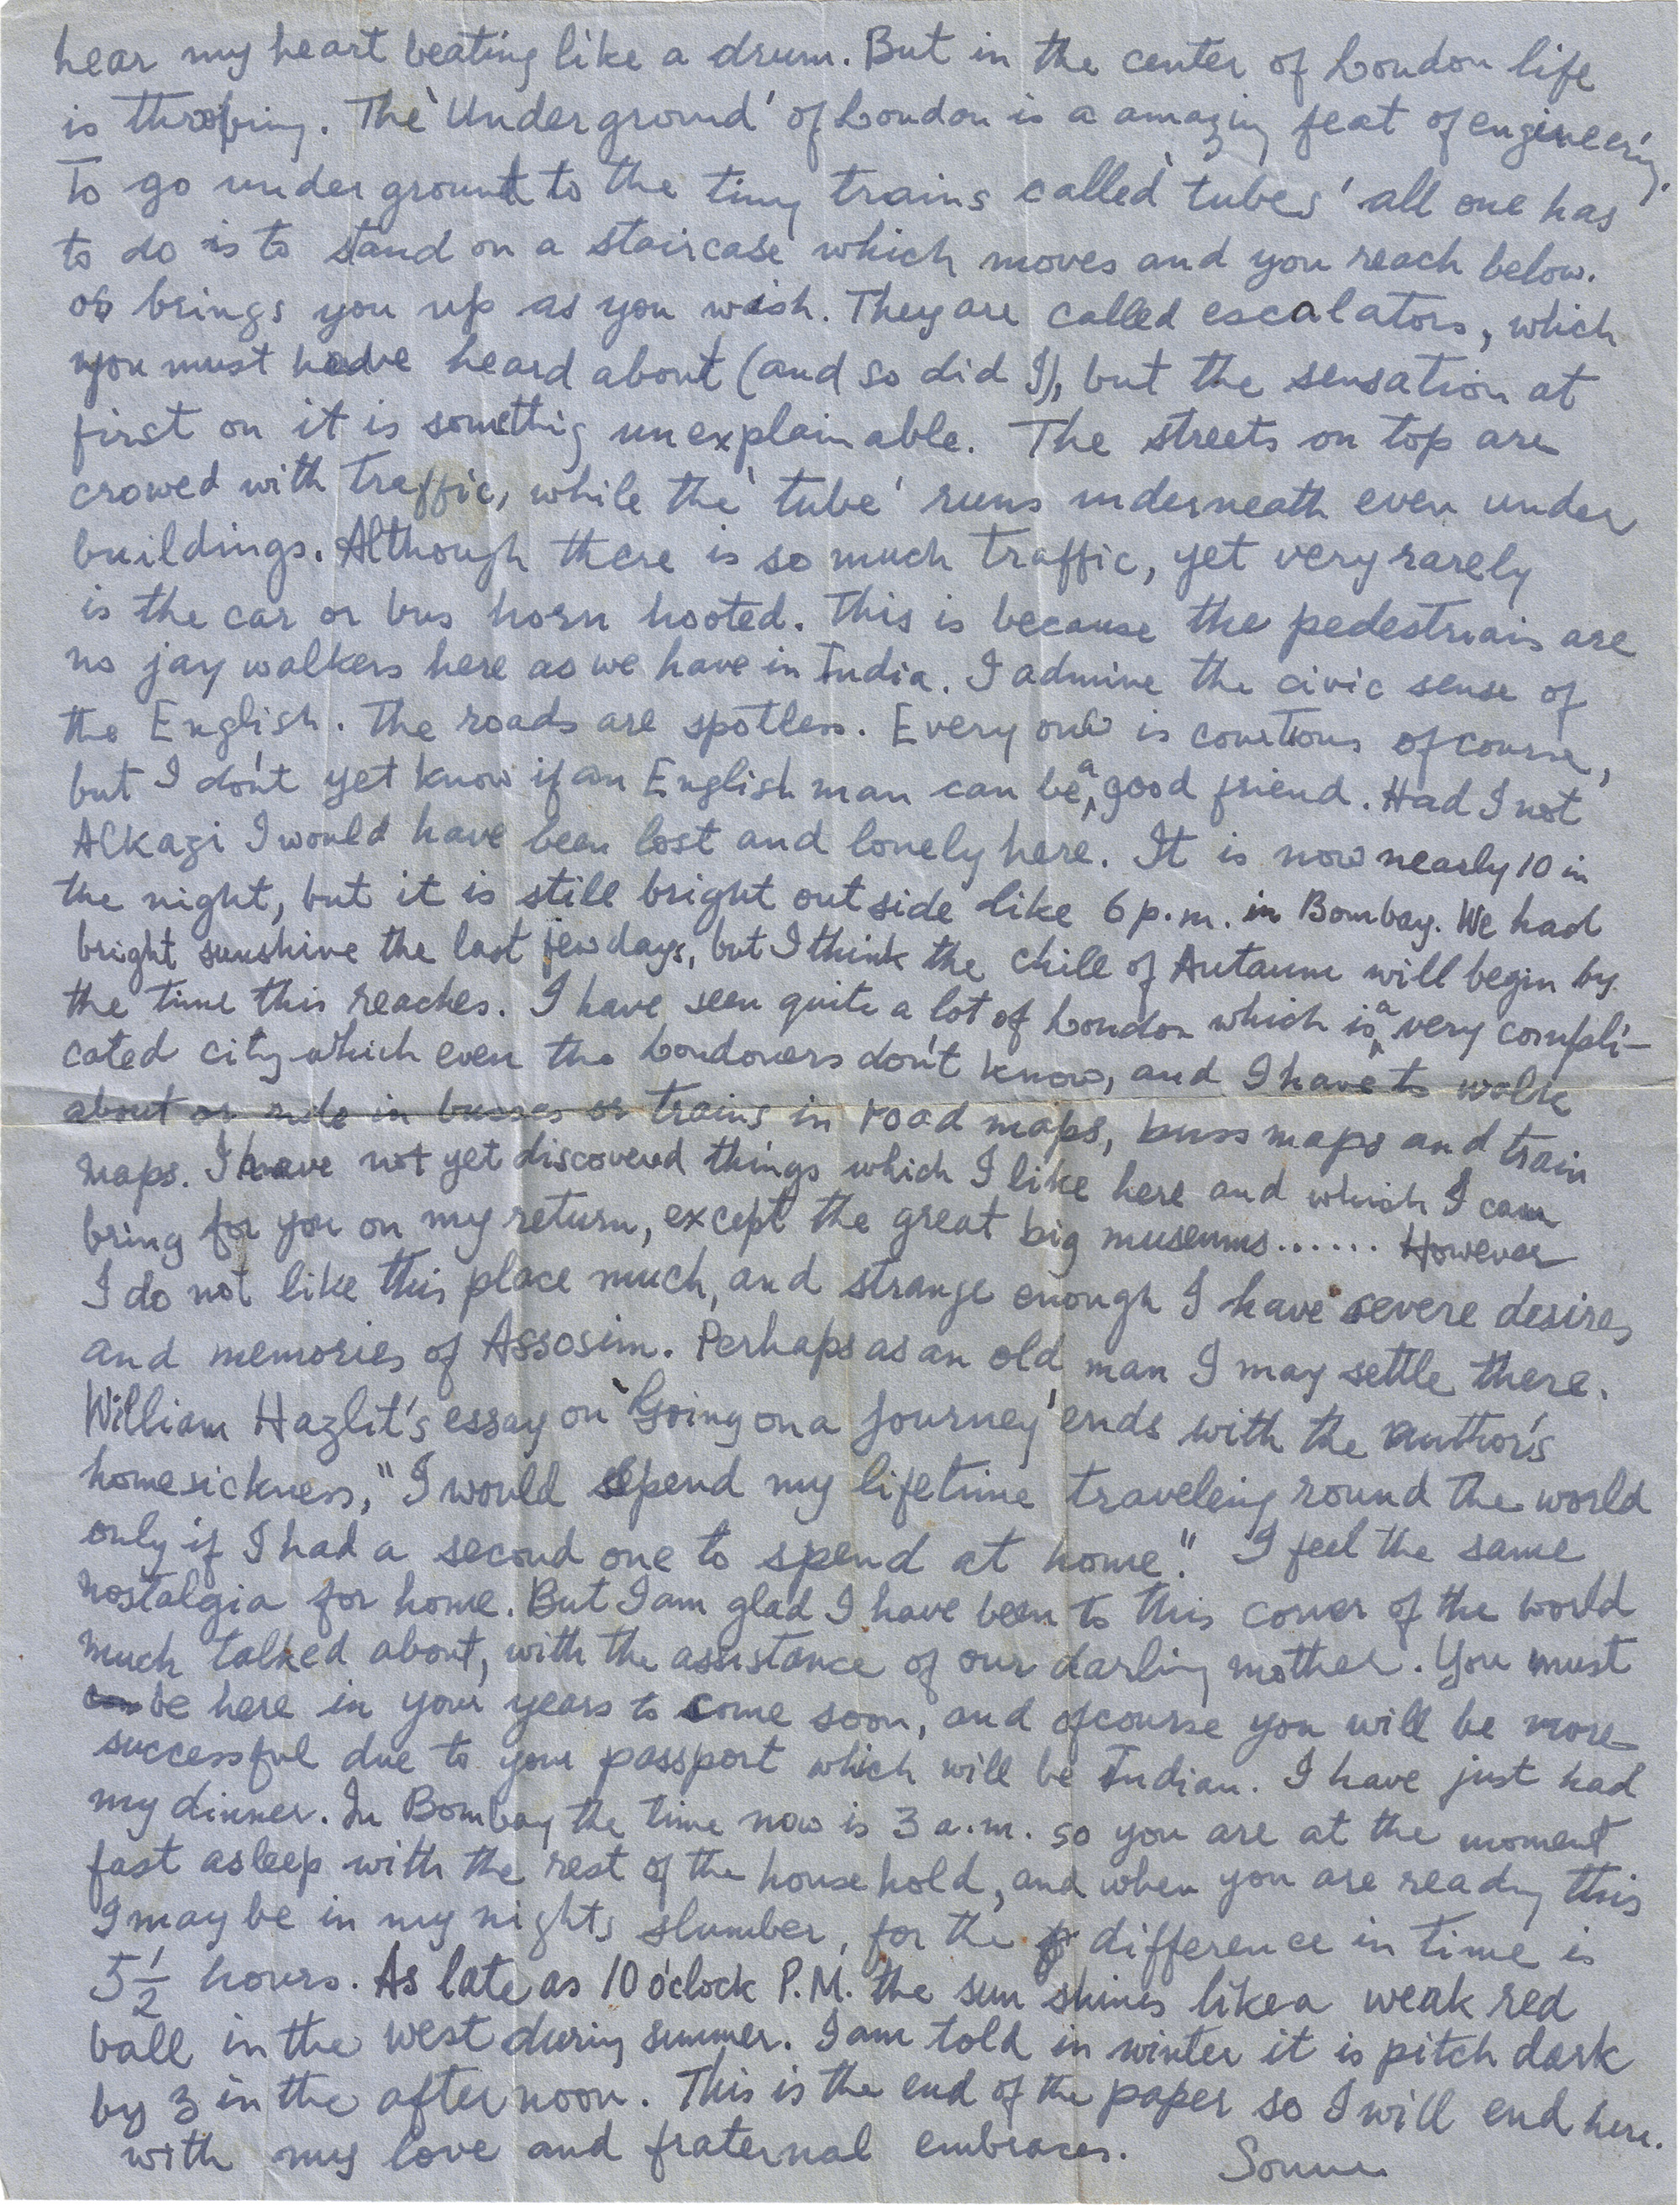 hear my heart beating like a drum. But in the center of London life
is throbing. The 'Underground' of London is a amazing feat of engineering.
To go under ground to the tiny trains called 'tubes' all one has
to do is to stand on a staircase which moves and you reach below.
or brings you up as you wish. They are called escalators, which
you must have heard about (and so did I), but the sensation at
first on it is something unexplainable. The streets on top are
crowed with traffic, while the 'tube' runs underneath even under
buildings. Although there is so much traffic, yet very rarely
is the car or bus horn hooted. This is because the pedestriais are
no jay walkers here as we have in India. I admire the civic sense of
the English. The roads are spotless. Every one is courtious ofcourse,
but I don't yet know if an English man can be a good friend. Had I not
Alkazi I would have been lost and lonely here. It is now nearly 10 in
the night, but it is still bright outside like 6 p.m. in Bombay. We had
bright sunshine the last few days, but I think the chill of Autaum will begin by
the time this reaches. I have seen quite a lot of London which is a very compli-
cated city which even the Londoners don't know, and I have to walk
about or ride in busses or trains in road maps, buss maps and train
maps. I have not yet discovered things which I like here and which I can
bring for you on my return, except the great big museums...... However
I do not like this place much, and strange enough I have severe desires
and memories of Assosim. Perhaps as an old man I may settle there.
William Hazlit's essay on 'Going on a Journey' ends with the author's
homesickness, "I would spend my lifetime traveleing round the world
only if I had a second one to spend at home." I feel the same
nostalgia for home. But I am glad I have been to this corner of the world
much talked about, with the assistance of our darling mother. You must
be here in your years to come soon, and ofcourse you will be more
successful due to your passport which will be Indian. I have just had
my dinner. In Bombay the time now is 3 a.m. so you are at the moment
fast asleep with the rest of the house hold, and when you are reading this
I may be in my nights slumber, for the difference in time is
5 1/2 hours. As late as 10 o'clock P.M. the sun shines like a weak red
ball in the west during summer. I am told in winter it is pitch dark
by 3 in the afternoon. This is the end of the paper so I will end here.
with my love and fraternal embraces.